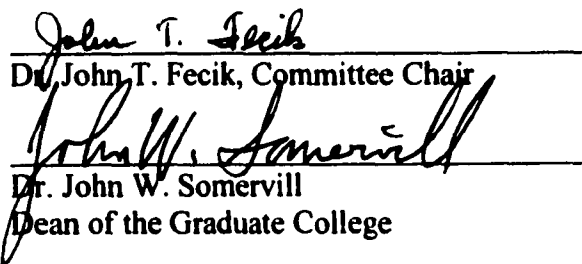 John T. Fecik
Dr. John T. Fecik, Committee Chair
John W. Somervill
Dr. John W. Somervill
Dean of the Graduate College